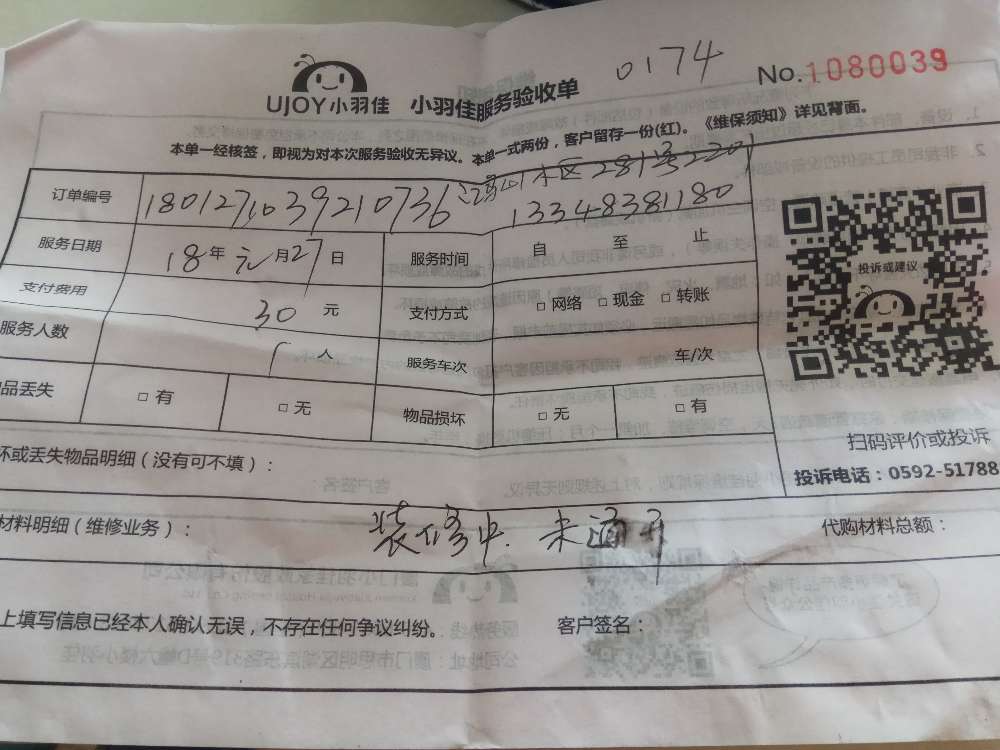 0174
No.1080039
UJOY小羽佳 小羽佳服务验收单
本单一经核签，即视为对本次服务验收无异议。本单一式两份，客户留存一份(红)。《维保须知》详见背面。
区281号2201
订单编号 1801271039210736 13348381180
服务日期 18年元月27日 服务时间 自 至 止
支付费用 30元 支付方式 □网络 □现金 □转账
服务人数 1人 服务车次 车/次
品丢失 □有 □无 物品损坏 □无 □有
投诉或建议
扫码评价或投诉
投诉电话：0592-51788
坏或丢失物品明细（没有可不填）：
材料明细（维修业务）： 装修中. 未 代购材料总额：
上填写信息已经本人确认无误，不存在任何争议纠纷。 客户签名：